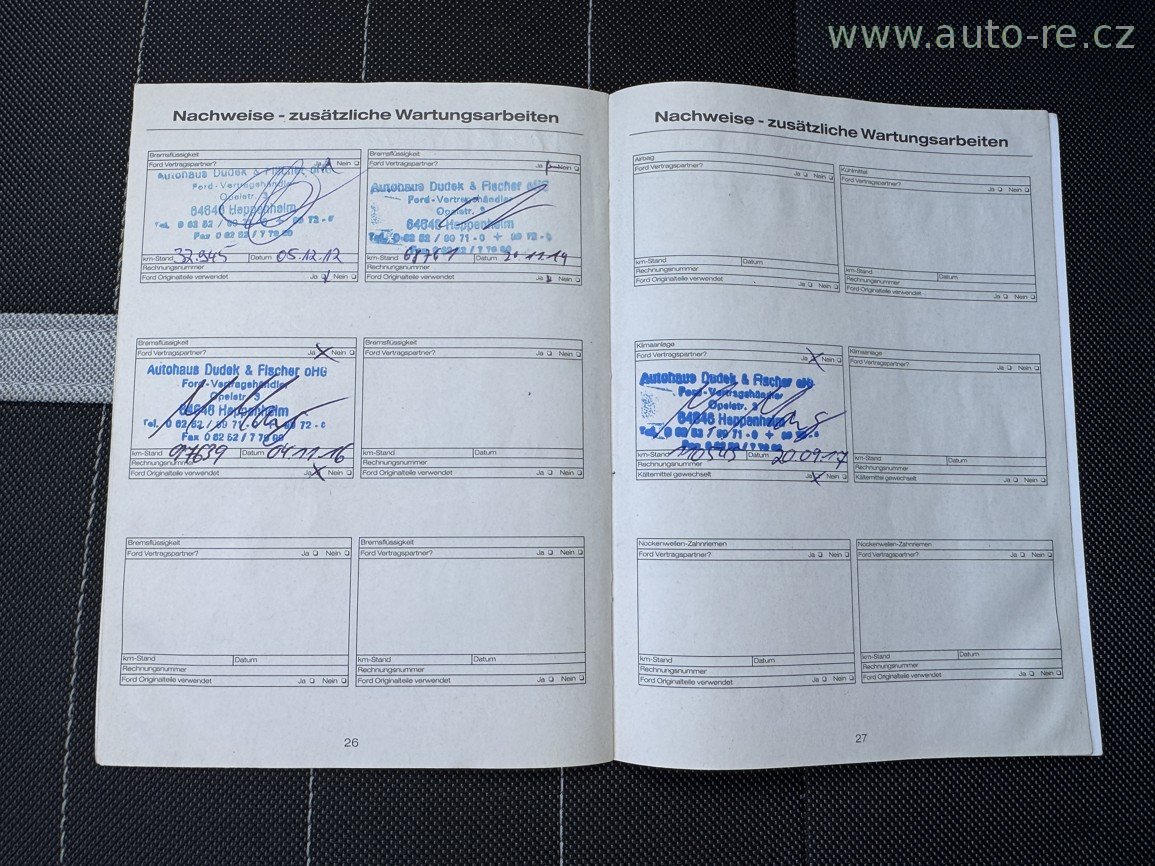 www.auto-re.cz
Nachweise - zusätzliche Wartungsarbeiten
Bremsflüssigkeit
Ford Vertragspartner? Ja Nein
Autohaus Dudek & Fischer oHG
Ford-Vertragshändler
Opelstr. 3
64646 Heppenheim
km-Stand 32.945 Datum 05.12.12
Rechnungsnummer
Ford Originalteile verwendet Ja Nein
Bremsflüssigkeit
Ford Vertragspartner? Ja Nein
Autohaus Dudek & Fischer oHG
Ford-Vertragshändler
Opelstr. 3
64646 Heppenheim
km-Stand 68761 Datum 20.11.14
Rechnungsnummer
Ford Originalteile verwendet Ja Nein
Bremsflüssigkeit
Ford Vertragspartner? Ja Nein
Autohaus Dudek & Fischer oHG
Ford-Vertragshändler
Opelstr. 3
64646 Heppenheim
km-Stand 97639 Datum 04.11.16
Rechnungsnummer
Ford Originalteile verwendet Ja Nein
Bremsflüssigkeit
Ford Vertragspartner? Ja Nein
km-Stand Datum
Rechnungsnummer
Ford Originalteile verwendet Ja Nein
Bremsflüssigkeit
Ford Vertragspartner? Ja Nein
km-Stand Datum
Rechnungsnummer
Ford Originalteile verwendet Ja Nein
Bremsflüssigkeit
Ford Vertragspartner? Ja Nein
km-Stand Datum
Rechnungsnummer
Ford Originalteile verwendet Ja Nein
26
Nachweise - zusätzliche Wartungsarbeiten
Airbag
Ford Vertragspartner? Ja Nein
km-Stand Datum
Rechnungsnummer
Ford Originalteile verwendet Ja Nein
Kühlmittel
Ford Vertragspartner? Ja Nein
km-Stand Datum
Rechnungsnummer
Ford Originalteile verwendet Ja Nein
Klimaanlage
Ford Vertragspartner? Ja Nein
Autohaus Dudek & Fischer oHG
Ford-Vertragshändler
Opelstr. 3
64646 Heppenheim
km-Stand 110545 Datum 20.09.17
Rechnungsnummer
Kältemittel gewechselt Ja Nein
Klimaanlage
Ford Vertragspartner? Ja Nein
km-Stand Datum
Rechnungsnummer
Kältemittel gewechselt Ja Nein
Nockenwellen-Zahnriemen
Ford Vertragspartner? Ja Nein
km-Stand Datum
Rechnungsnummer
Ford Originalteile verwendet Ja Nein
Nockenwellen-Zahnriemen
Ford Vertragspartner? Ja Nein
km-Stand Datum
Rechnungsnummer
Ford Originalteile verwendet Ja Nein
27